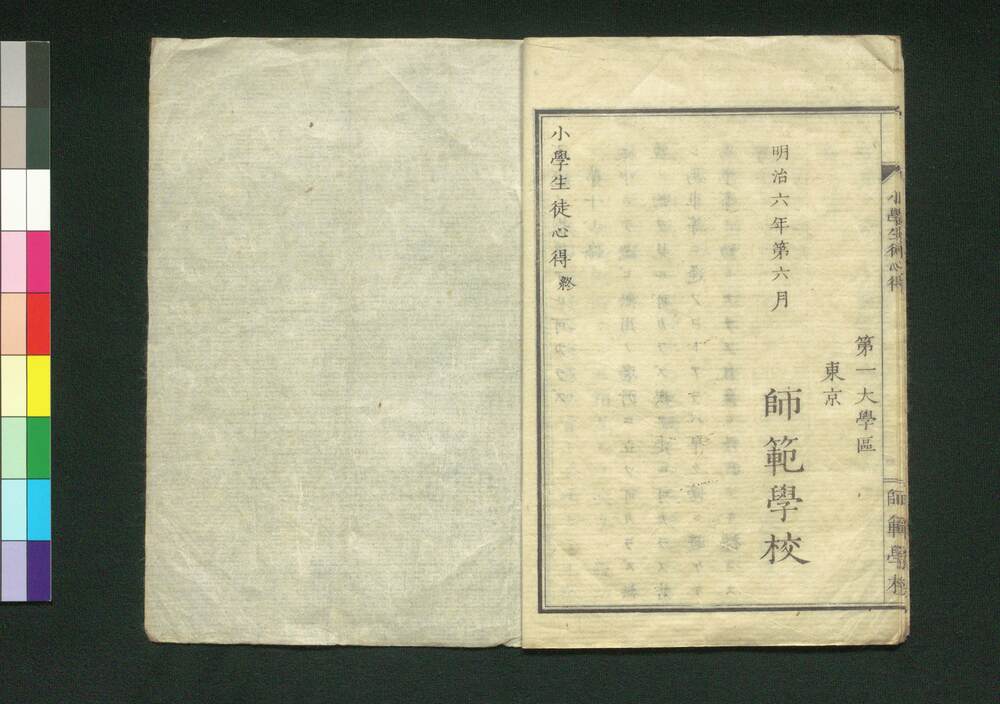 小學生徒心得
師範學校
第一大學區
東京
師範學校
明治六年第六月
小學生徒心得終